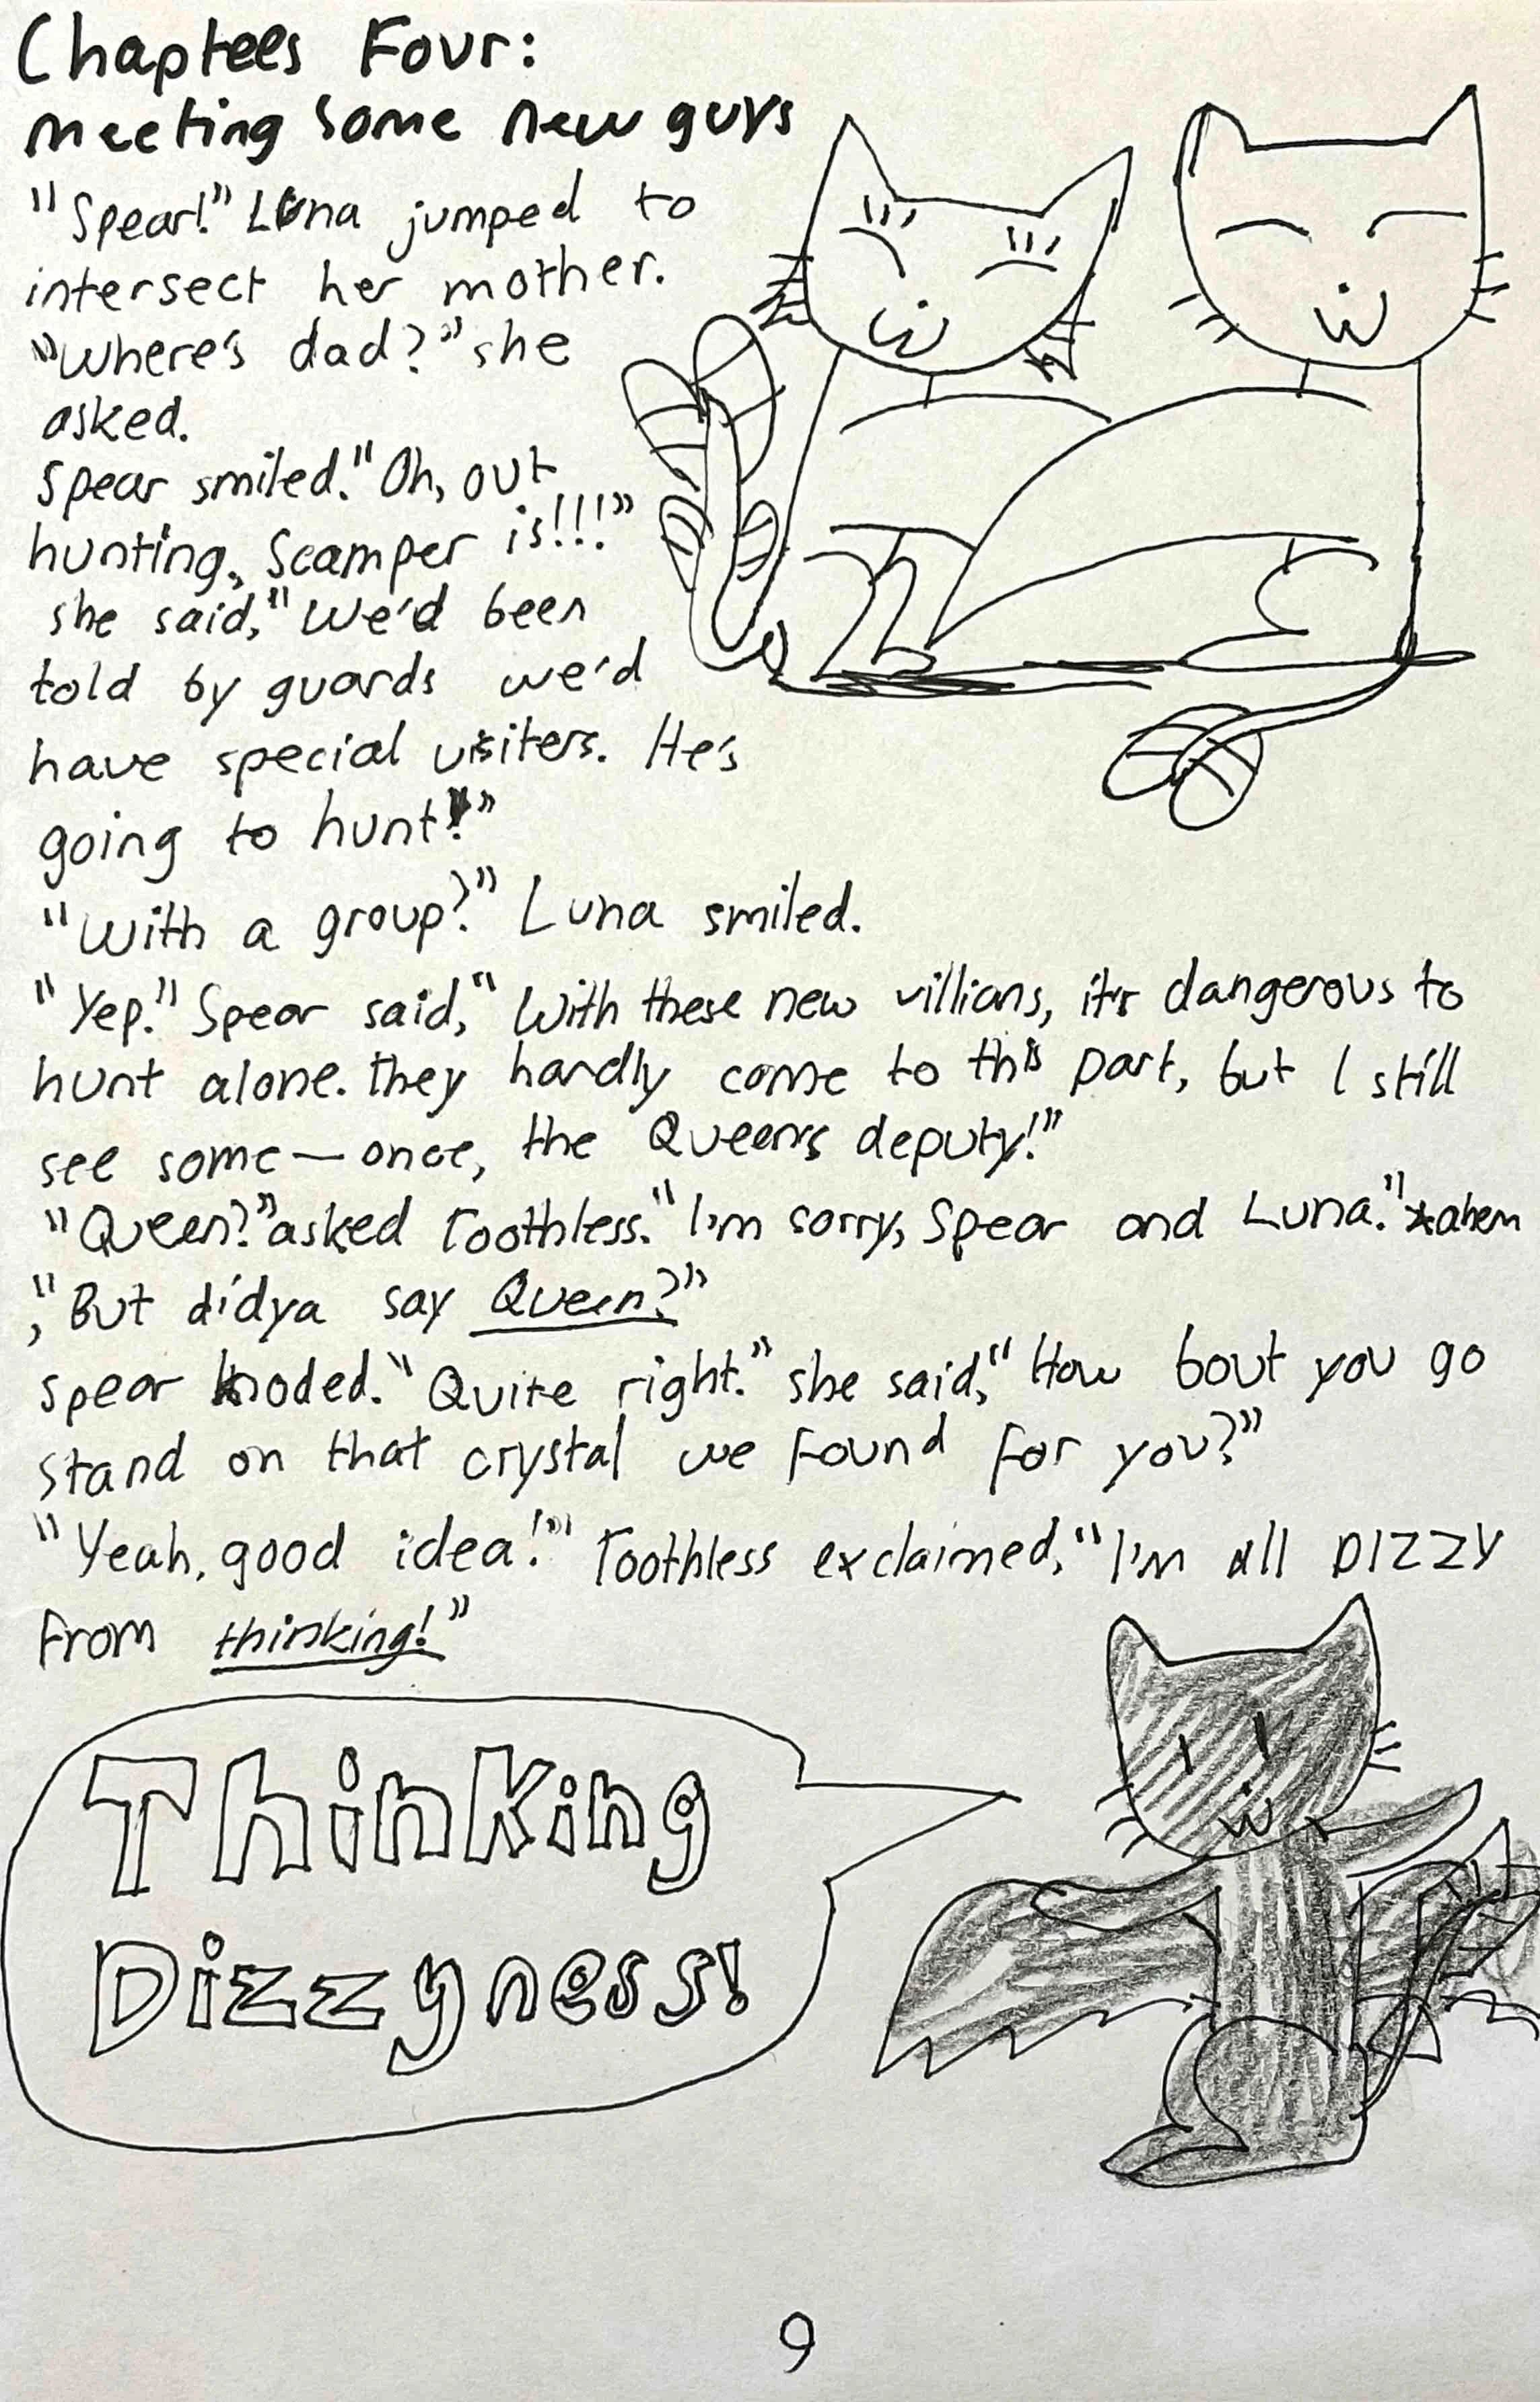 Chaptees Four:
meeting some new guys
"Spear!" Luna jumped to
intersect her mother.
"Where's dad?" she
asked.
Spear smiled. "Oh, out
hunting, Scamper is!!!"
she said, "We'd been
told by guards we'd
have special visiters. He's
going to hunt!"
"With a group?" Luna smiled.
"Yep." Spear said, "With these new villians, it's dangerous to
hunt alone. they hardly come to this part, but I still
see some—once, the Queen's deputy!"
"Queen?" asked Toothless. "I'm sorry, Spear and Luna." *ahem
, "But didya say Queen?"
Spear noded. "Quite right." she said, "How bout you go
stand on that crystal we found for you?"
"Yeah, good idea!" Toothless exclaimed, "I'm all DIZZY
from thinking!"
Thinking
Dizzyness!
9